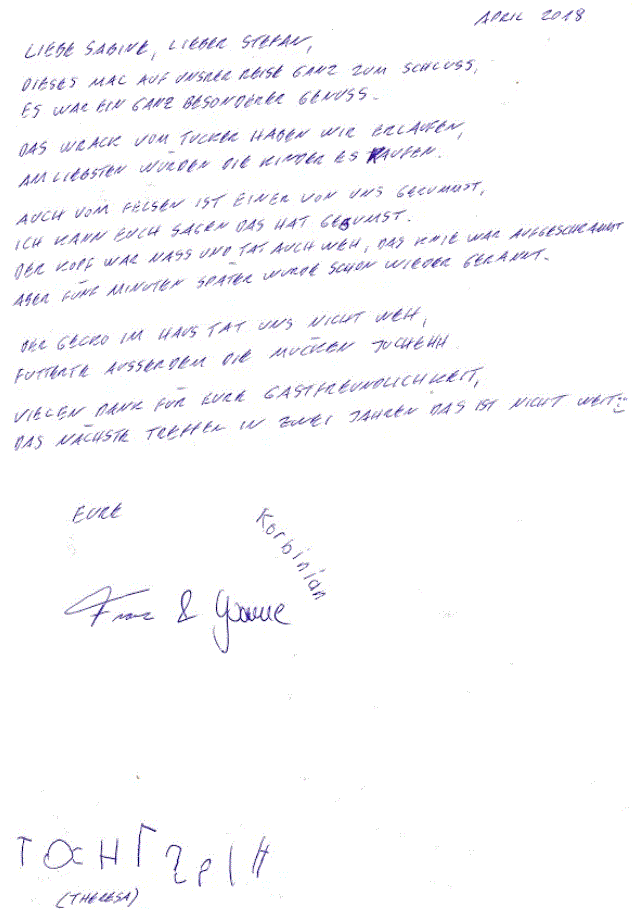 APRIL 2018
LIEBE SABINE, LIEBER STEFAN,
DIESES MAL AUF UNSRER REISE GANZ ZUM SCHLUSS,
ES WAR EIN GANZ BESONDERER GENUSS.
DAS WRACK VOM TUCKER HABEN WIR ERLAUFEN,
AM LIEBSTEN WÜRDEN DIE KINDER ES KAUFEN.
AUCH VOM FELSEN IST EINER VON UNS GERUMMST,
ICH KANN EUCH SAGEN DAS HAT GEBUMST.
DER KOPF WAR NASS UND TAT AUCH WEH, DAS KNIE WAR AUFGESCHRAMMT
ABER FÜNF MINUTEN SPÄTER WURDE SCHON WIEDER GERANNT.
DER GECKO IM HAUS TAT UNS NICHT WEH,
FUTTERTE AUSSERDEM DIE MÜCKEN JUCHEHH.
VIELEN DANK FÜR EURE GASTFREUNDLICHKEIT,
DAS NÄCHSTE TREFFEN IN ZWEI JAHREN DAS IST NICHT WEIT
EURE
Korbinian
& Yvonne
(THERESA)